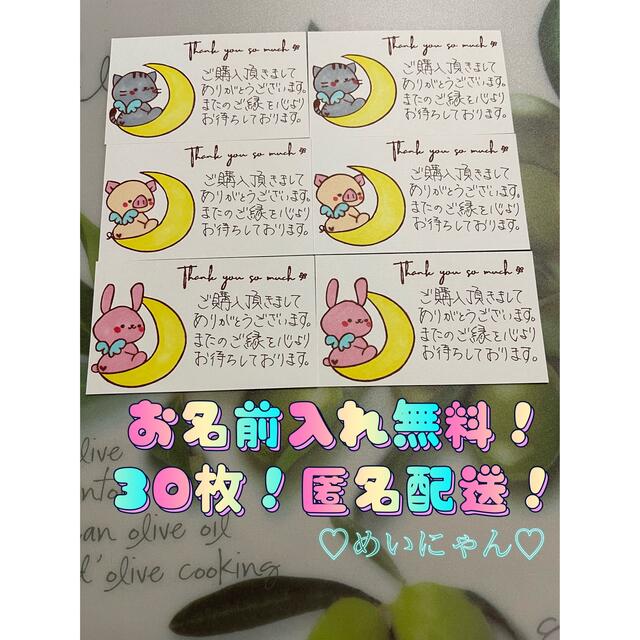 Thank you so much
ご購入頂きまして
ありがとうございます。
またのご縁を心より
お待ちしております。
Thank you so much
ご購入頂きまして
ありがとうございます。
またのご縁を心より
お待ちしております。
Thank you so much
ご購入頂きまして
ありがとうございます。
またのご縁を心より
お待ちしております。
Thank you so much
ご購入頂きまして
ありがとうございます。
またのご縁を心より
お待ちしております。
Thank you so much
ご購入頂きまして
ありがとうございます。
またのご縁を心より
お待ちしております。
Thank you so much
ご購入頂きまして
ありがとうございます。
またのご縁を心より
お待ちしております。
お名前入れ無料！
30枚！匿名配送！
♡めいにゃん♡
olive oil
olive cooking